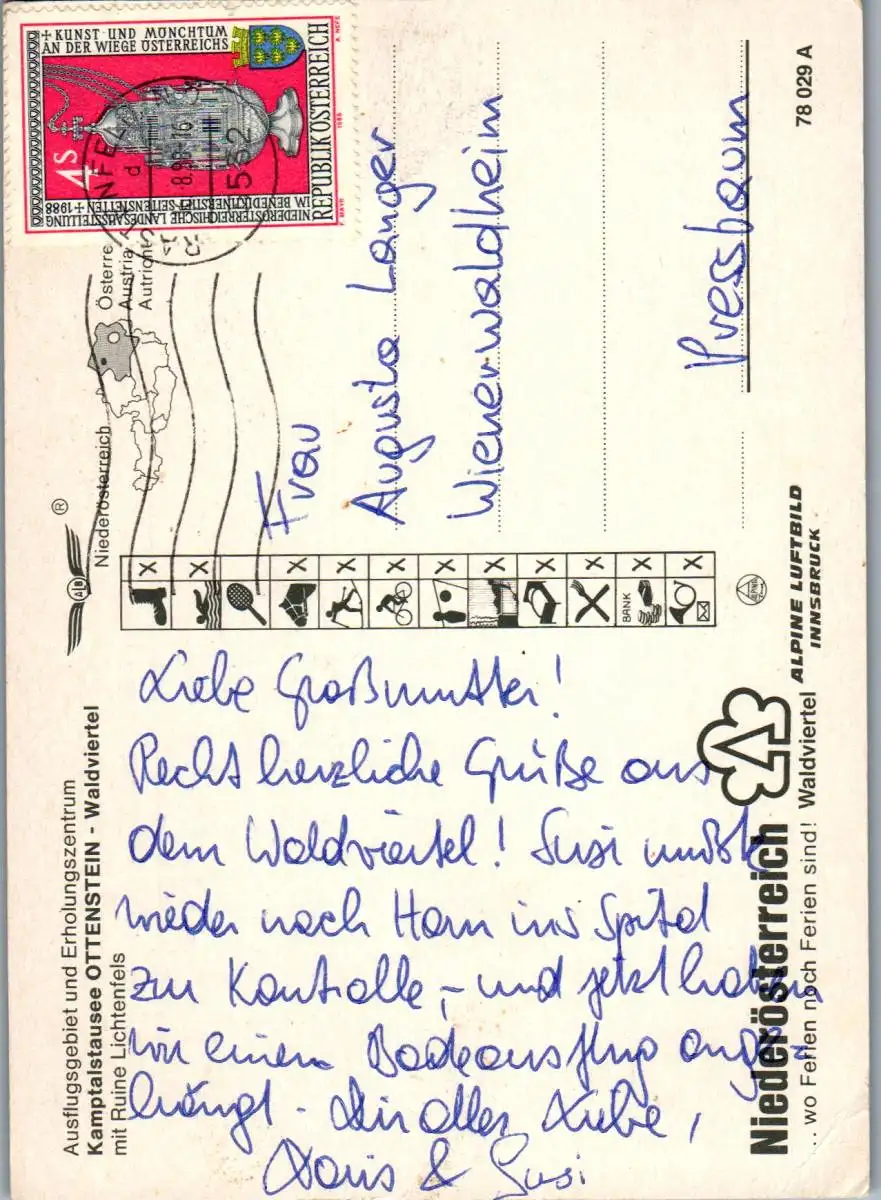 Ausflugsgebiet und Erholungszentrum
Kamptalstausee OTTENSTEIN - Waldviertel
mit Ruine Lichtenfels
Liebe Großmutter!
Recht herzliche Grüße aus
dem Waldviertel! Susi mußte
wieder nach Horn ins Spital
zur Kontrolle, - und jetzt haben
wir einen Badeausflug ange-
hängt. Dir alles Liebe,
Doris & Susi
Niederösterreich
...wo Ferien noch Ferien sind! Waldviertel
ALPINE LUFTBILD
INNSBRUCK
ALB
®
Niederösterreich
Österre
Austria
Autriche
X
X
X
X
X
X
X
X
X
X
X
X
BANK
+ KUNST UND MÖNCHTUM
AN DER WIEGE ÖSTERREICHS
4S
NIEDERÖSTERREICHISCHE LANDESAUSSTELLUNG
IM BENEDIKTINERSTIFT SEITENSTETTEN + 1988
REPUBLIK ÖSTERREICH
1988
Frau
Augusta Langer
Wienerwaldheim
Pressbaum
78 029 A